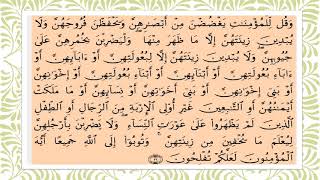 وَقُل لِّلْمُؤْمِنَٰتِ يَغْضُضْنَ مِنْ أَبْصَٰرِهِنَّ وَيَحْفَظْنَ فُرُوجَهُنَّ وَلَا
يُبْدِينَ زِينَتَهُنَّ إِلَّا مَا ظَهَرَ مِنْهَا ۖ وَلْيَضْرِبْنَ بِخُمُرِهِنَّ عَلَىٰ
جُيُوبِهِنَّ ۖ وَلَا يُبْدِينَ زِينَتَهُنَّ إِلَّا لِبُعُولَتِهِنَّ أَوْ ءَابَآئِهِنَّ أَوْ
ءَابَآءِ بُعُولَتِهِنَّ أَوْ أَبْنَآئِهِنَّ أَوْ أَبْنَآءِ بُعُولَتِهِنَّ أَوْ إِخْوَٰنِهِنَّ
أَوْ بَنِىٓ إِخْوَٰنِهِنَّ أَوْ بَنِىٓ أَخَوَٰتِهِنَّ أَوْ نِسَآئِهِنَّ أَوْ مَا مَلَكَتْ
أَيْمَٰنُهُنَّ أَوِ ٱلتَّٰبِعِينَ غَيْرِ أُو۟لِى ٱلْإِرْبَةِ مِنَ ٱلرِّجَالِ أَوِ ٱلطِّفْلِ
ٱلَّذِينَ لَمْ يَظْهَرُوا۟ عَلَىٰ عَوْرَٰتِ ٱلنِّسَآءِ ۖ وَلَا يَضْرِبْنَ بِأَرْجُلِهِنَّ
لِيُعْلَمَ مَا يُخْفِينَ مِن زِينَتِهِنَّ ۚ وَتُوبُوٓا۟ إِلَى ٱللَّهِ جَمِيعًا أَيُّهَ
ٱلْمُؤْمِنُونَ لَعَلَّكُمْ تُفْلِحُونَ